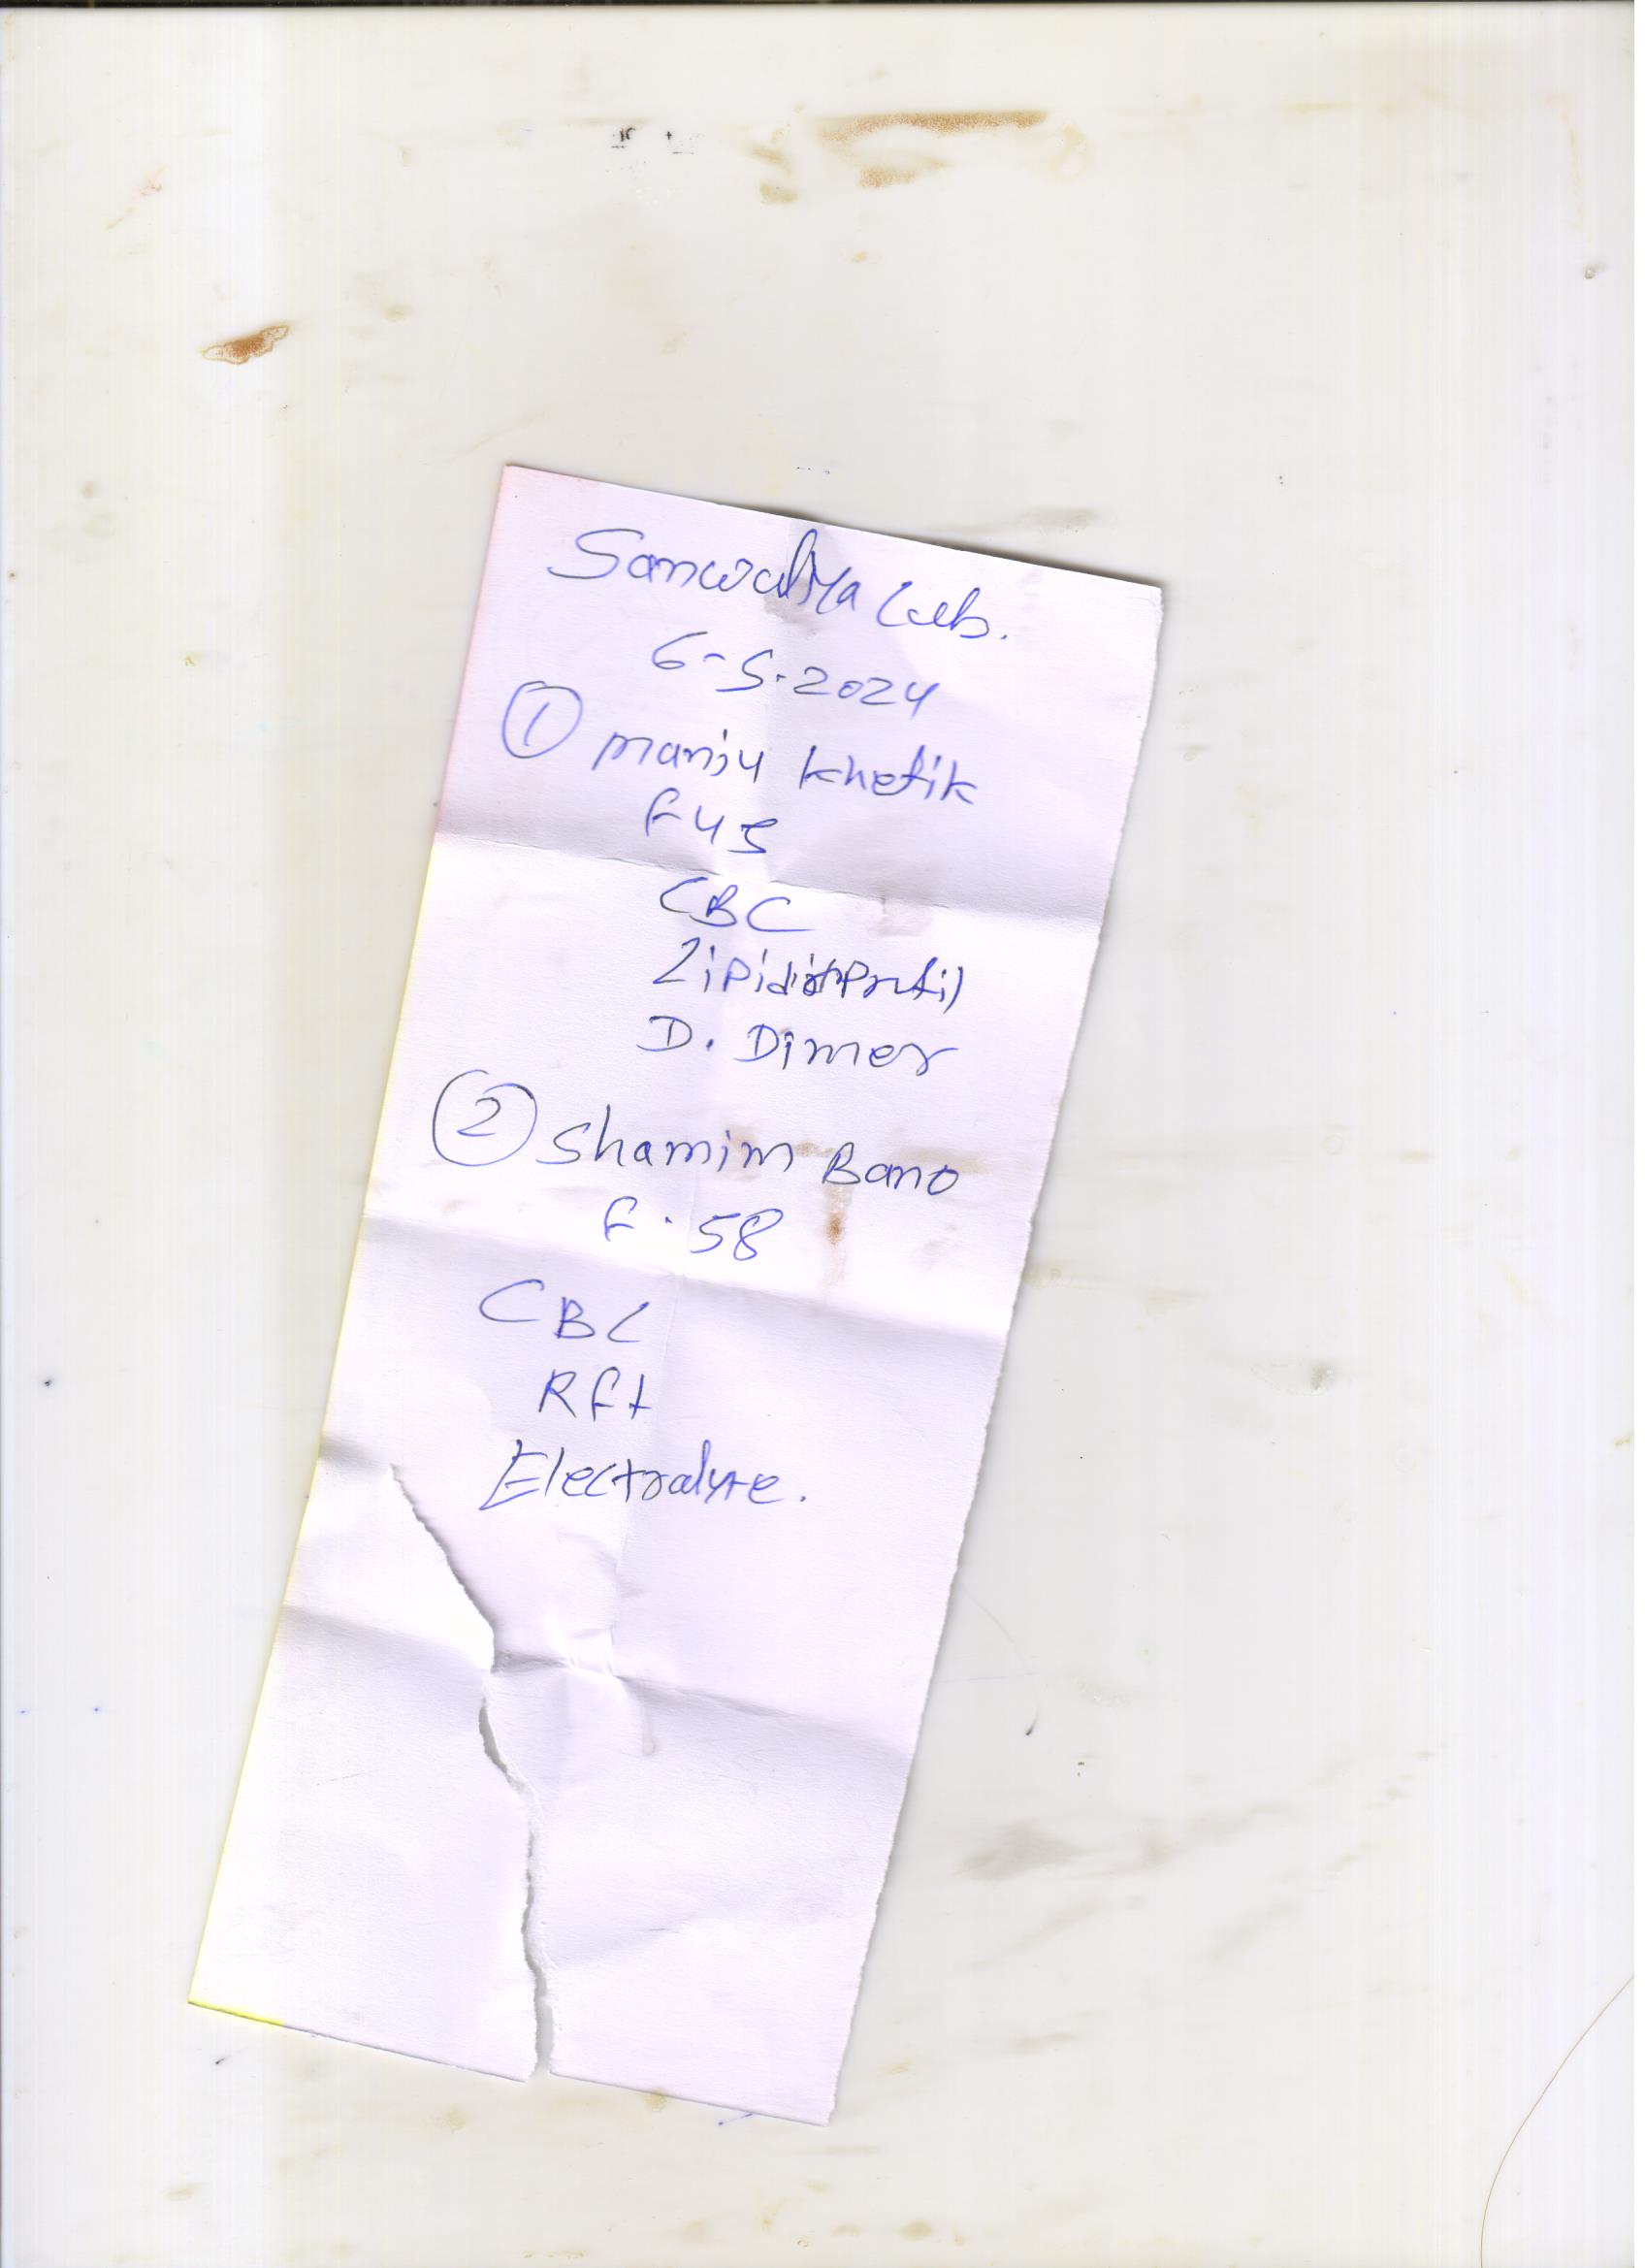 Sanwaliya Lab.
6-5-2024
① Manju Khetik
F 45
CBC
Lipid Profil
D. Dimer
② Shamim Bano
F. 58
CBC
Rft
Electralyte.